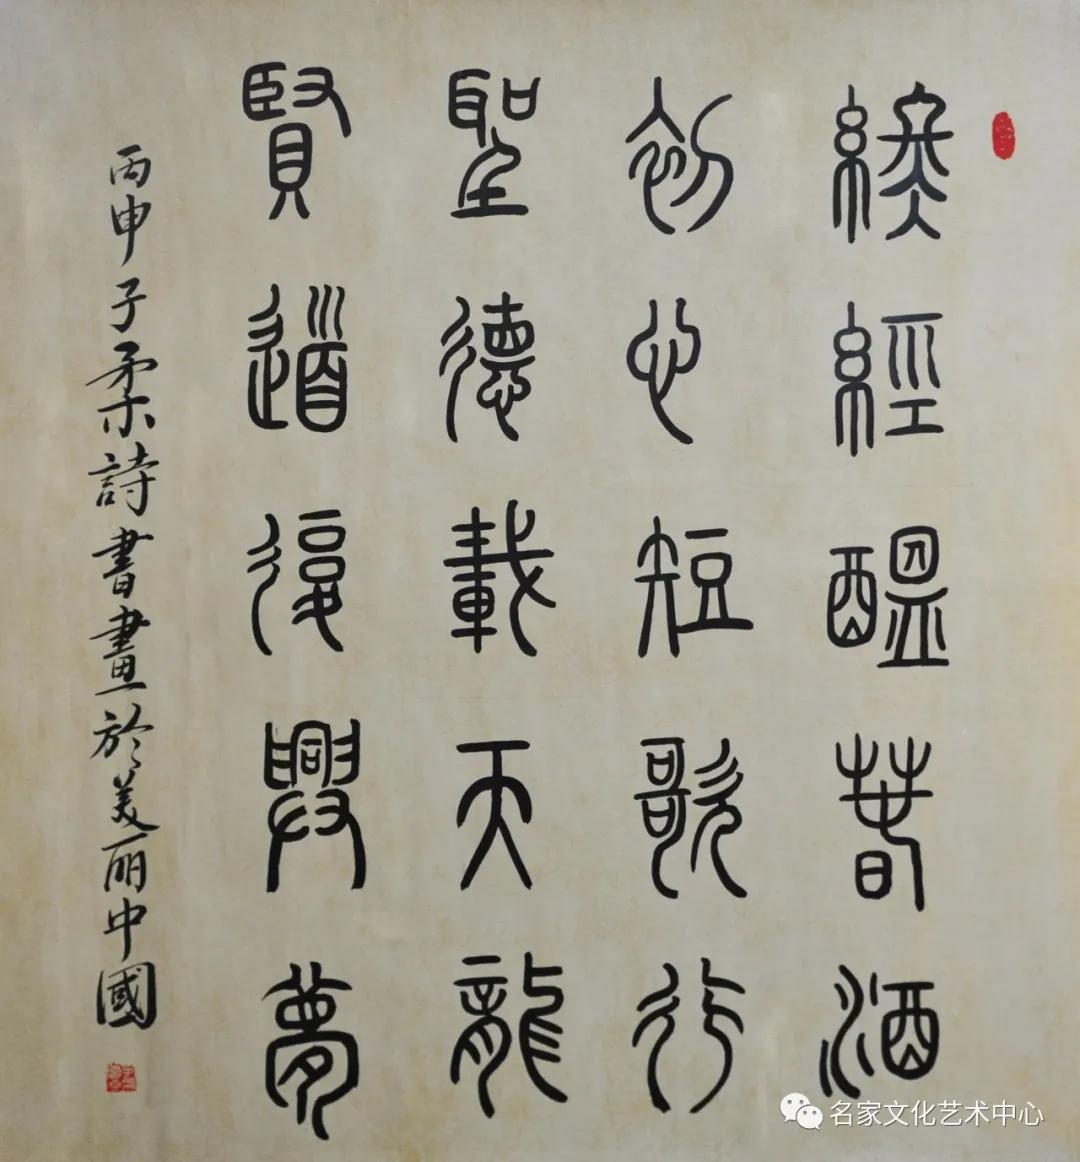 經醞春酒
初心短歌行
聖德載天龍
賢道復興夢
丙申子柔詩書畫於美丽中國
名家文化艺术中心